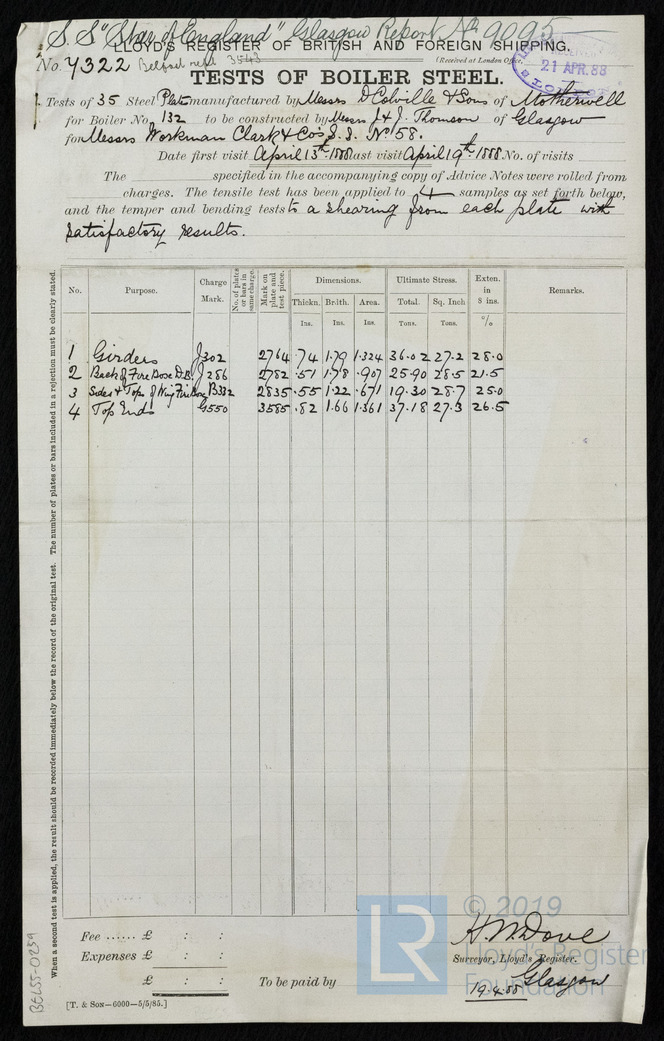 S. S. "Star of England" Glasgow Report No 9095
LLOYD'S REGISTER OF BRITISH AND FOREIGN SHIPPING.
No. 7322 Belfast rept 3543 (Received at London Office
21 APR. 88
TESTS OF BOILER STEEL.
1. Tests of 35 Steel Plates manufactured by Messrs D Colville & Sons of Motherwell
for Boiler No. 132 to be constructed by Messrs J & J. Thomson of Glasgow
for Messrs Workman Clark & Co's S.S. No 58.
Date first visit April 13th 1888 last visit April 19th 1888 No. of visits
The specified in the accompanying copy of Advice Notes were rolled from
charges. The tensile test has been applied to 4 samples as set forth below,
and the temper and bending tests to a shearing from each plate with
satisfactory results.
No. Purpose. Charge Mark. No. of plates or bars in same charge. Mark on plate and test piece. Dimensions. Ultimate Stress. Exten. in 8 ins. Remarks.
Thickn. Br'th. Area. Total. Sq. Inch
Ins. Ins. Ins. Tons. Tons. %
1 Girders J302 2764 .74 1.79 1.324 36.02 27.2 28.0
2 Back of Fire Box D.B. J286 2782 .51 1.78 .907 25.90 28.5 21.5
3 Sides & Tops of Wing Fire Box B332 2835 .55 1.22 .671 19.30 28.7 25.0
4 Top Ends G550 3585 .82 1.66 1.361 37.18 27.3 26.5
When a second test is applied, the result should be recorded immediately below the record of the original test. The number of plates or bars included in a rejection must be clearly stated.
BEL55-0259
Fee ...... £ : :
Expenses ... £ : :
£ : :
To be paid by
[T. & SON—6000—5/5/85.]
H. W. Dove
Surveyor, Lloyd's Register.
Glasgow
19.4.88
LR
© 2019
Lloyd's Register
Foundation